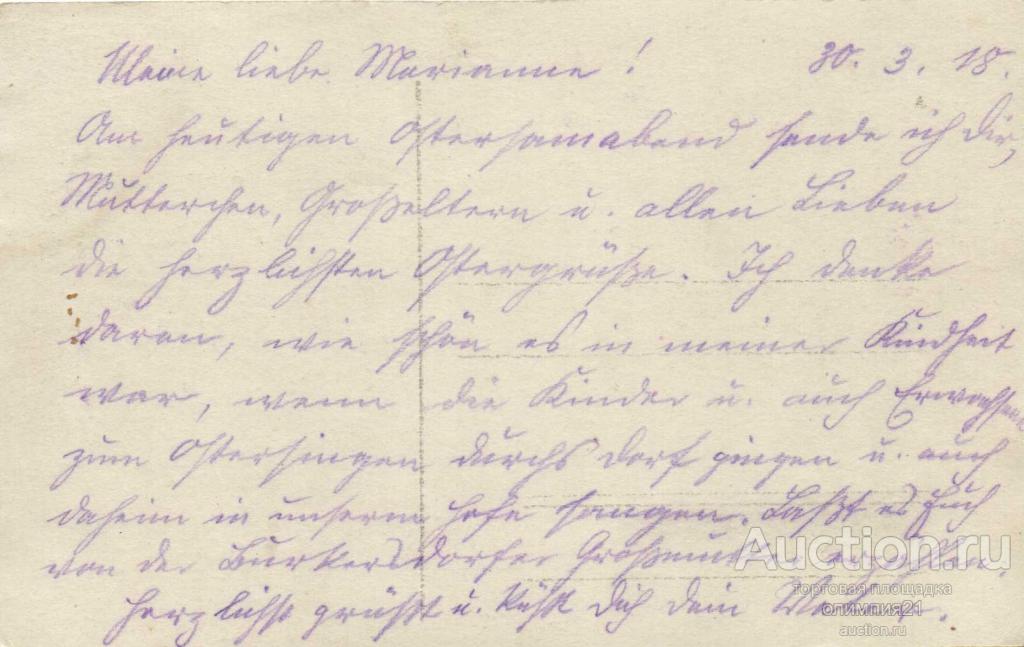 Meine liebe Marianne! 30. 3. 18.
Am heutigen Ostersonnabend sende ich Dir,
Mutterchen, Großeltern u. allen Lieben
die herzlichsten Ostergrüße. Ich denke
daran, wie schön es in meiner Kindheit
war, wenn die Kinder u. auch Erwachsene
zum Ostersingen durchs Dorf gingen u. auch
daheim in unserm Hofe sangen. Laßt es Euch
von der Burkersdorfer Großmutter erzählen.
Herzlichst grüßt u. küßt Dich dein
Auction.ru
торговая площадка
олимпия21
auction.ru